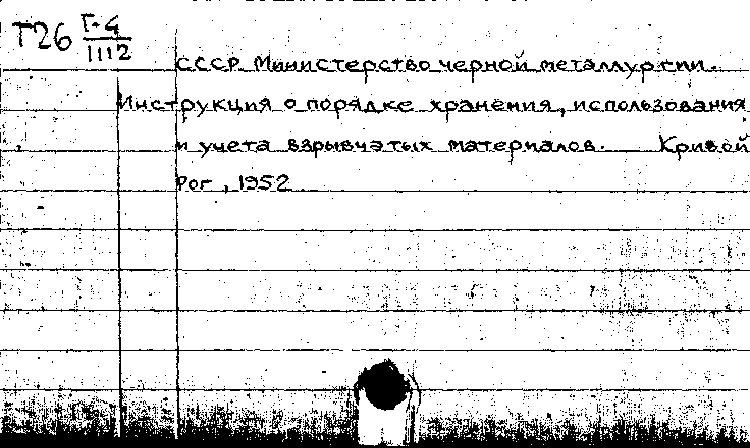 Т26 Г-4
1112
СССР Министерство черной металлургии.
Инструкция о порядке хранения, использования
и учета взрывчатых материалов. Кривой
Рог, 1952